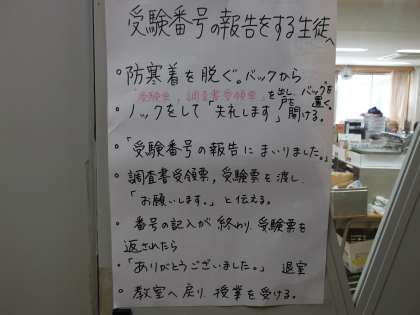 受験番号の報告をする生徒へ
・防寒着を脱ぐ。バックから
「受験票,調査書受領票」を出し、バックを置く。
・ノックをして「失礼します」戸を開ける。
・「受験番号の報告にまいりました。」
・調査書受領票,受験票を渡し、
「お願いします。」と伝える。
・番号の記入が終わり、受験票を
返されたら
・「ありがとうございました。」 退室
・教室へ戻り、授業を受ける。